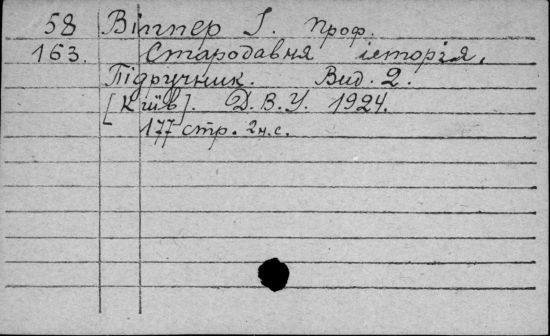 58 Віппер І. проф.
163. Стародавня історія.
Підручник. Вид. 2.
[Київ]. Д.В.У. 1924.
177 стр. 2 н.с.